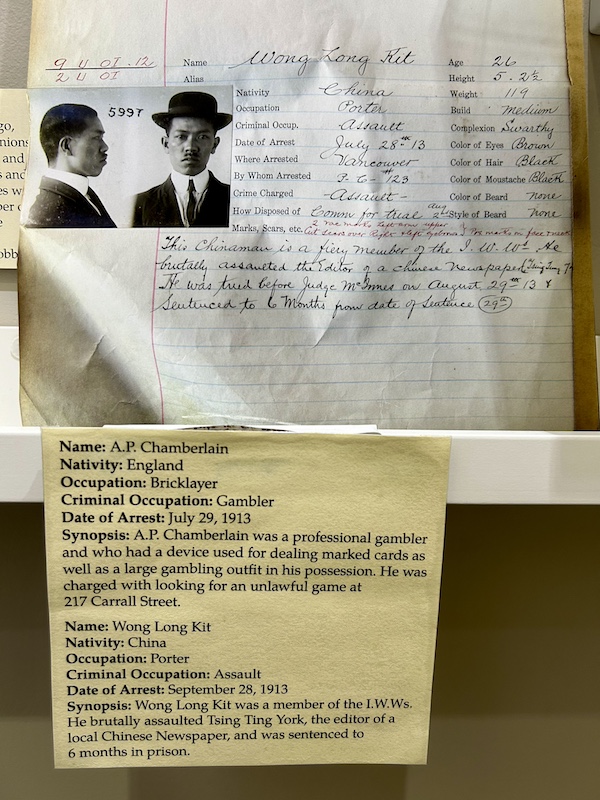 9 U OI .12
2 U OI
Name Wong Long Kit Age 26
Alias Height 5. 2½
Nativity China Weight 119
Occupation Porter Build Medium
Criminal Occup. Assault Complexion Swarthy
Date of Arrest July 28th 13 Color of Eyes Brown
Where Arrested Vancouver Color of Hair Black
By Whom Arrested P.C. #123 Color of Moustache Black
Crime Charged Assault Color of Beard none
How Disposed of Comm for trial Aug 2nd Style of Beard none
Marks, Scars, etc. 2 vac marks left arm upper
cut scars over right & left eyebrows
5997
This Chinaman is a fiery member of the I. W. Ws. He
brutally assaulted the Editor of a Chinese Newspaper
He was tried before Judge McInnes on August 29th 13 &
Sentenced to 6 Months from date of Sentence (29th)
go,
nions
and
s and
es w
per o
obb
Name: A.P. Chamberlain
Nativity: England
Occupation: Bricklayer
Criminal Occupation: Gambler
Date of Arrest: July 29, 1913
Synopsis: A.P. Chamberlain was a professional gambler
and who had a device used for dealing marked cards as
well as a large gambling outfit in his possession. He was
charged with looking for an unlawful game at
217 Carrall Street.
Name: Wong Long Kit
Nativity: China
Occupation: Porter
Criminal Occupation: Assault
Date of Arrest: September 28, 1913
Synopsis: Wong Long Kit was a member of the I.W.Ws.
He brutally assaulted Tsing Ting York, the editor of a
local Chinese Newspaper, and was sentenced to
6 months in prison.